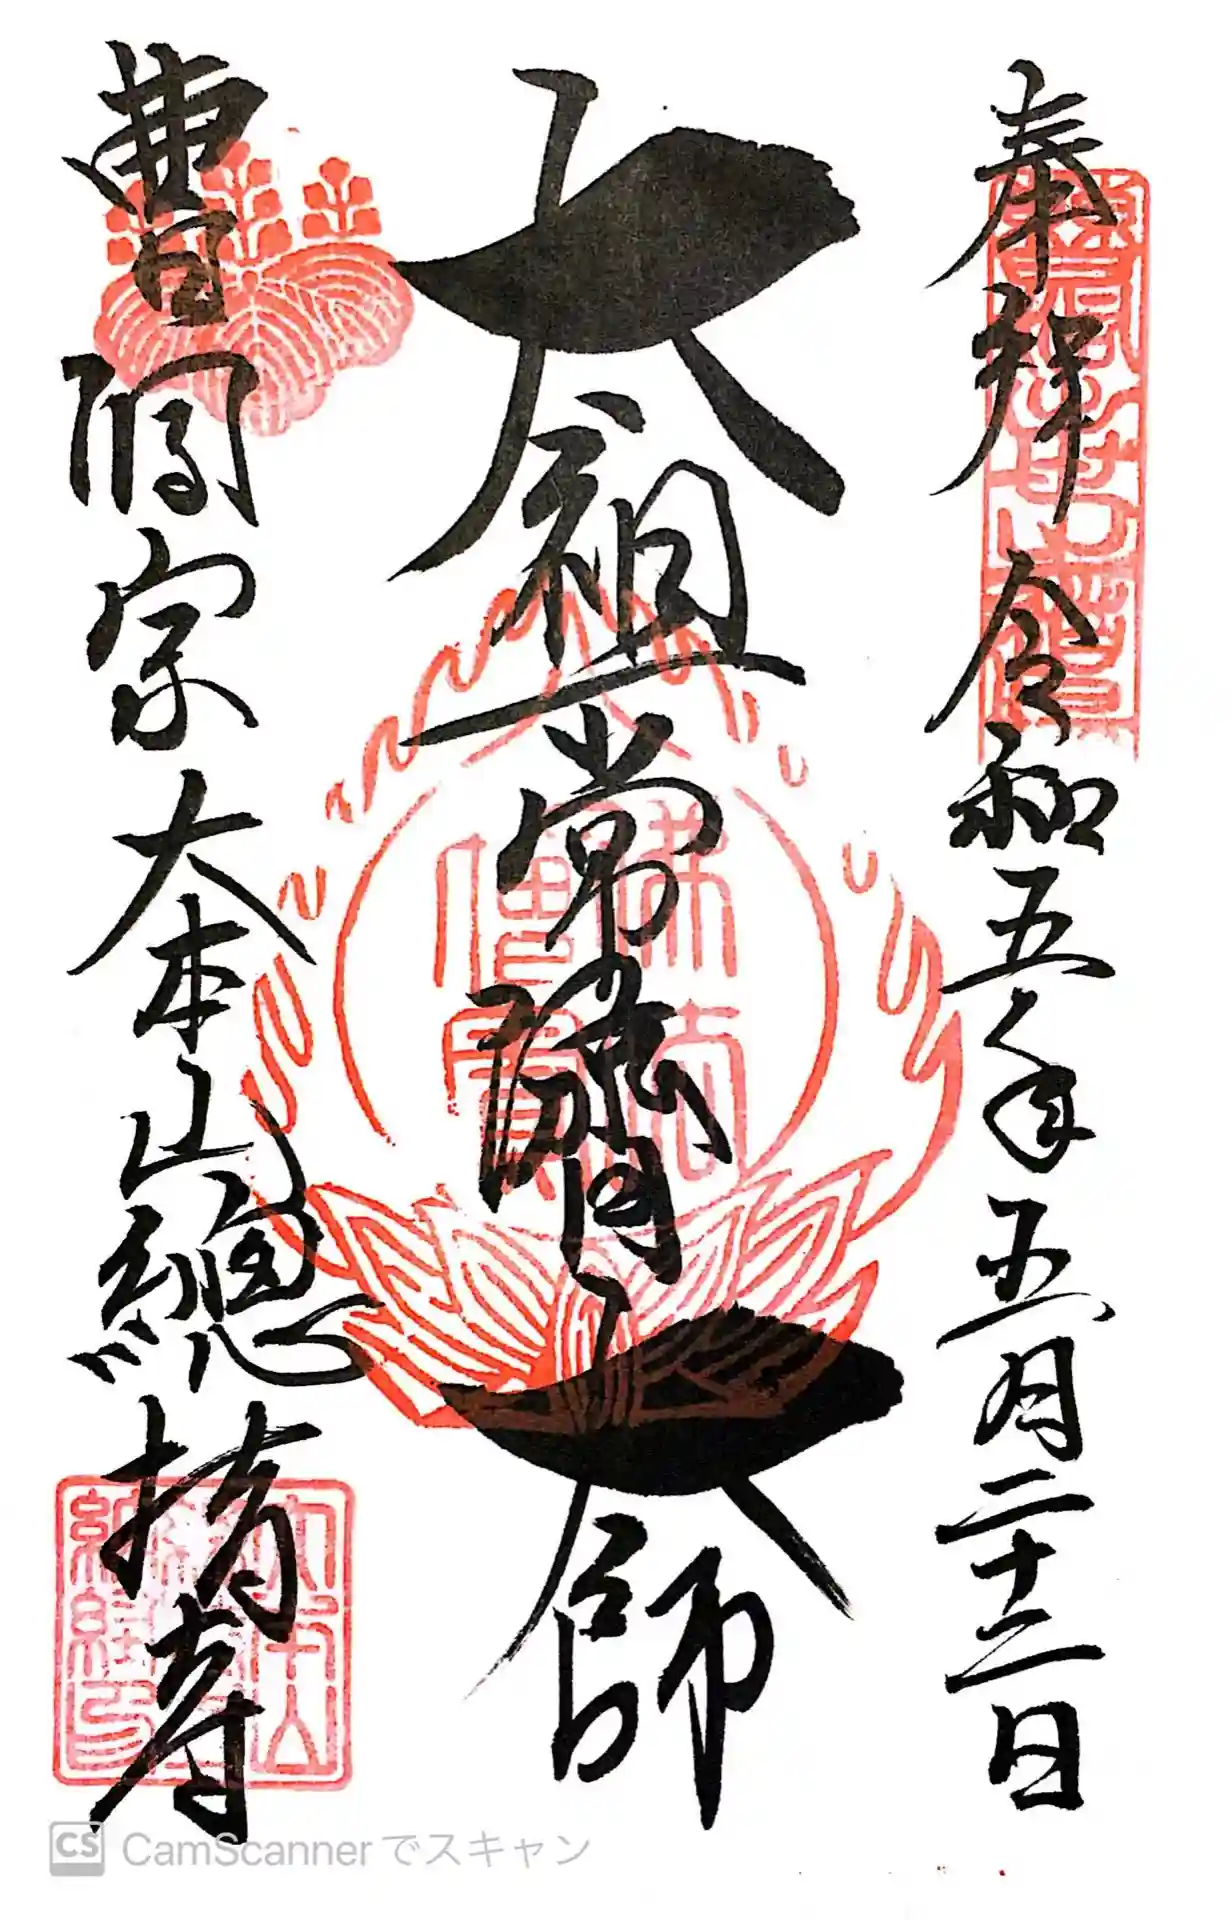 奉拝 令和五年五月二十二日
太祖常済大師
曹洞宗大本山總持寺
佛法僧寳
CS CamScannerでスキャン